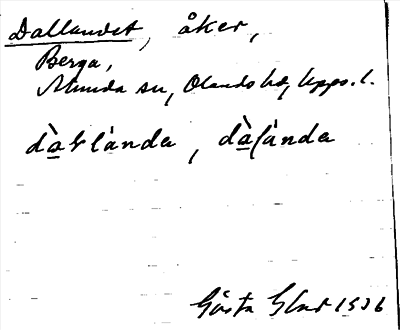 Dallandet, åker,
Berga,
Almunda sn, Olands hd, Upps. l.
dàllànda, dàlànda
Gösta 1936